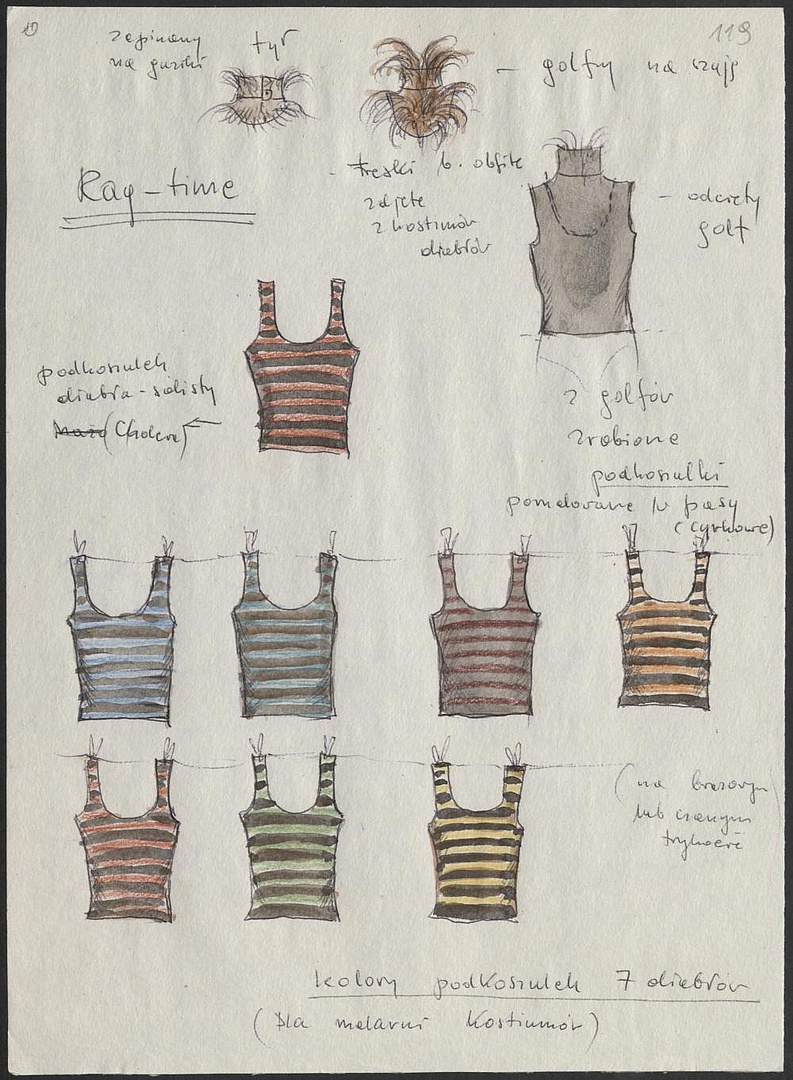 119
zapinany
na guziki
tył
— golfy na szyję
Rag-time
- treski b. obfite
zdjęte
z kostiumów
diabłów
— odcięty
golf
podkoszulek
diabła-solisty
z golfów
zrobione
podkoszulki
pomalowane w pasy
(cyrkowe)
(na brązowym
lub czarnym
trykocie
kolory podkoszulek 7 diabłów
(Dla malarni kostiumów)